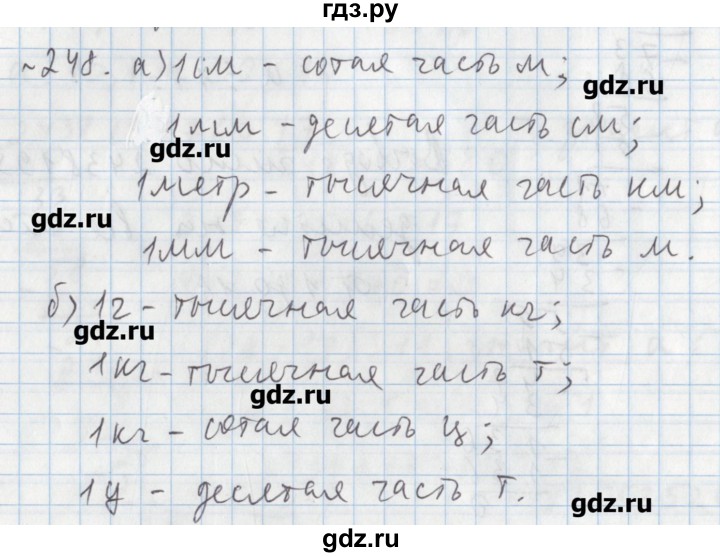 гдз.ру
№248. а) 1см - сотая часть м;
gdz.ru
1мм - десятая часть см;
gdz.ru
1метр - тысячная часть км;
gdz.ru
1мм - тысячная часть м.
б) 1г - тысячная часть кг;
gdz.ru
1кг - тысячная часть т;
gdz.ru
1кг - сотая часть ц;
1ц - десятая часть т.
gdz.ru
gdz.ru